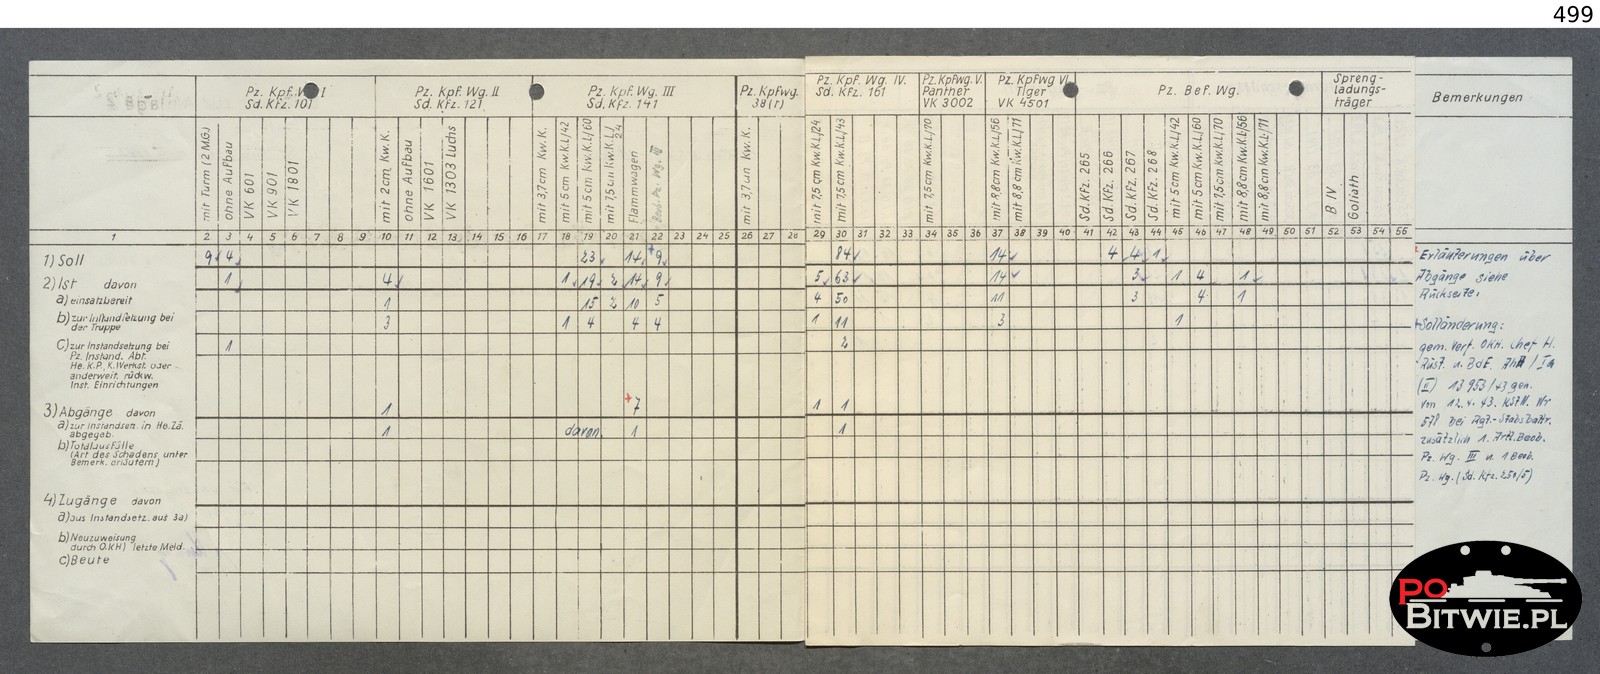 499
Pz. Kpf. Wg. I
Sd. Kfz. 101
Pz. Kpf. Wg. II
Sd. Kfz. 121
Pz. Kpf. Wg. III
Sd. Kfz. 141
Pz. Kpfwg.
38(t)
Pz. Kpf. Wg. IV.
Sd. Kfz. 161
Pz. Kpfwg. V.
Panther
VK 3002
Pz. Kpfwg VI
Tiger
VK 4501
Pz. Bef. Wg.
Spreng-
ladungs-
träger
Bemerkungen
mit Turm (2 M.G.)
ohne Aufbau
VK 601
VK 901
VK 1801
mit 2cm Kw.K.
ohne Aufbau
VK 1601
VK 1303 Luchs
mit 3,7cm Kw.K.
mit 5cm Kw.K.L/42
mit 5cm Kw.K.L/60
mit 7,5cm Kw.K.L/24
Flammwagen
mit 3,7cm Kw.K.
mit 7,5cm Kw.K.L/24
mit 7,5cm Kw.K.L/43
mit 7,5cm Kw.K.L/70
mit 8,8cm Kw.K.L/56
mit 8,8cm Kw.K.L/71
Sd. Kfz. 265
Sd. Kfz. 266
Sd. Kfz. 267
Sd. Kfz. 268
mit 5cm Kw.K.L/42
mit 5cm Kw.K.L/60
mit 7,5cm Kw.K.L/70
mit 8,8cm Kw.K.L/56
mit 8,8cm Kw.K.L/71
B IV
Goliath
1 2 3 4 5 6 7 8 9 10 11 12 13 14 15 16 17 18 19 20 21 22 23 24 25 26 27 28 29 30 31 32 33 34 35 36 37 38 39 40 41 42 43 44 45 46 47 48 49 50 51 52 53 54 55
1) Soll 9 4 23 14 +9 84 14 4 4 1
2) Ist davon 1 4 1 19 2 14 9 5 63 14 3 1 4 1
a) einsatzbereit 1 15 2 10 5 4 50 11 3 4 1
b) zur Instandsetzung bei
der Truppe 3 1 4 4 4 1 11 3 1
c) zur Instandsetzung bei 1 2
Pz. Instand. Abt.
He. K.P., K. Werkst. oder
anderweit. rückw.
Inst. Einrichtungen
3) Abgänge davon 1 +7 1 1
a) zur Instandsetz. in He. Zä.
abgegeb. 1 davon 1 1
b) Totalausfälle
(Art des Schadens unter
Bemerk. erläutern)
4) Zugänge davon
a) aus Instandsetz. aus 3a)
b) Neuzuweisung
durch O.K.H) letzte Meld.
c) Beute
Erläuterungen über
Abgänge siehe
Rückseite.
+ Solländerung:
gem. Verf. OKH. Chef H.
Rüst. u. BdE. AHA / Ia
(II) 13 953/43 geh.
von 12.4.43. KStN. Nr
571 bei Rgt.-Stabsbattr.
zusätzlich 1. Artl. Beob.
Pz. Wg. III u. 1 Beob.
Pz. Wg. (Sd. Kfz. 250/5)
PO
BITWIE.PL